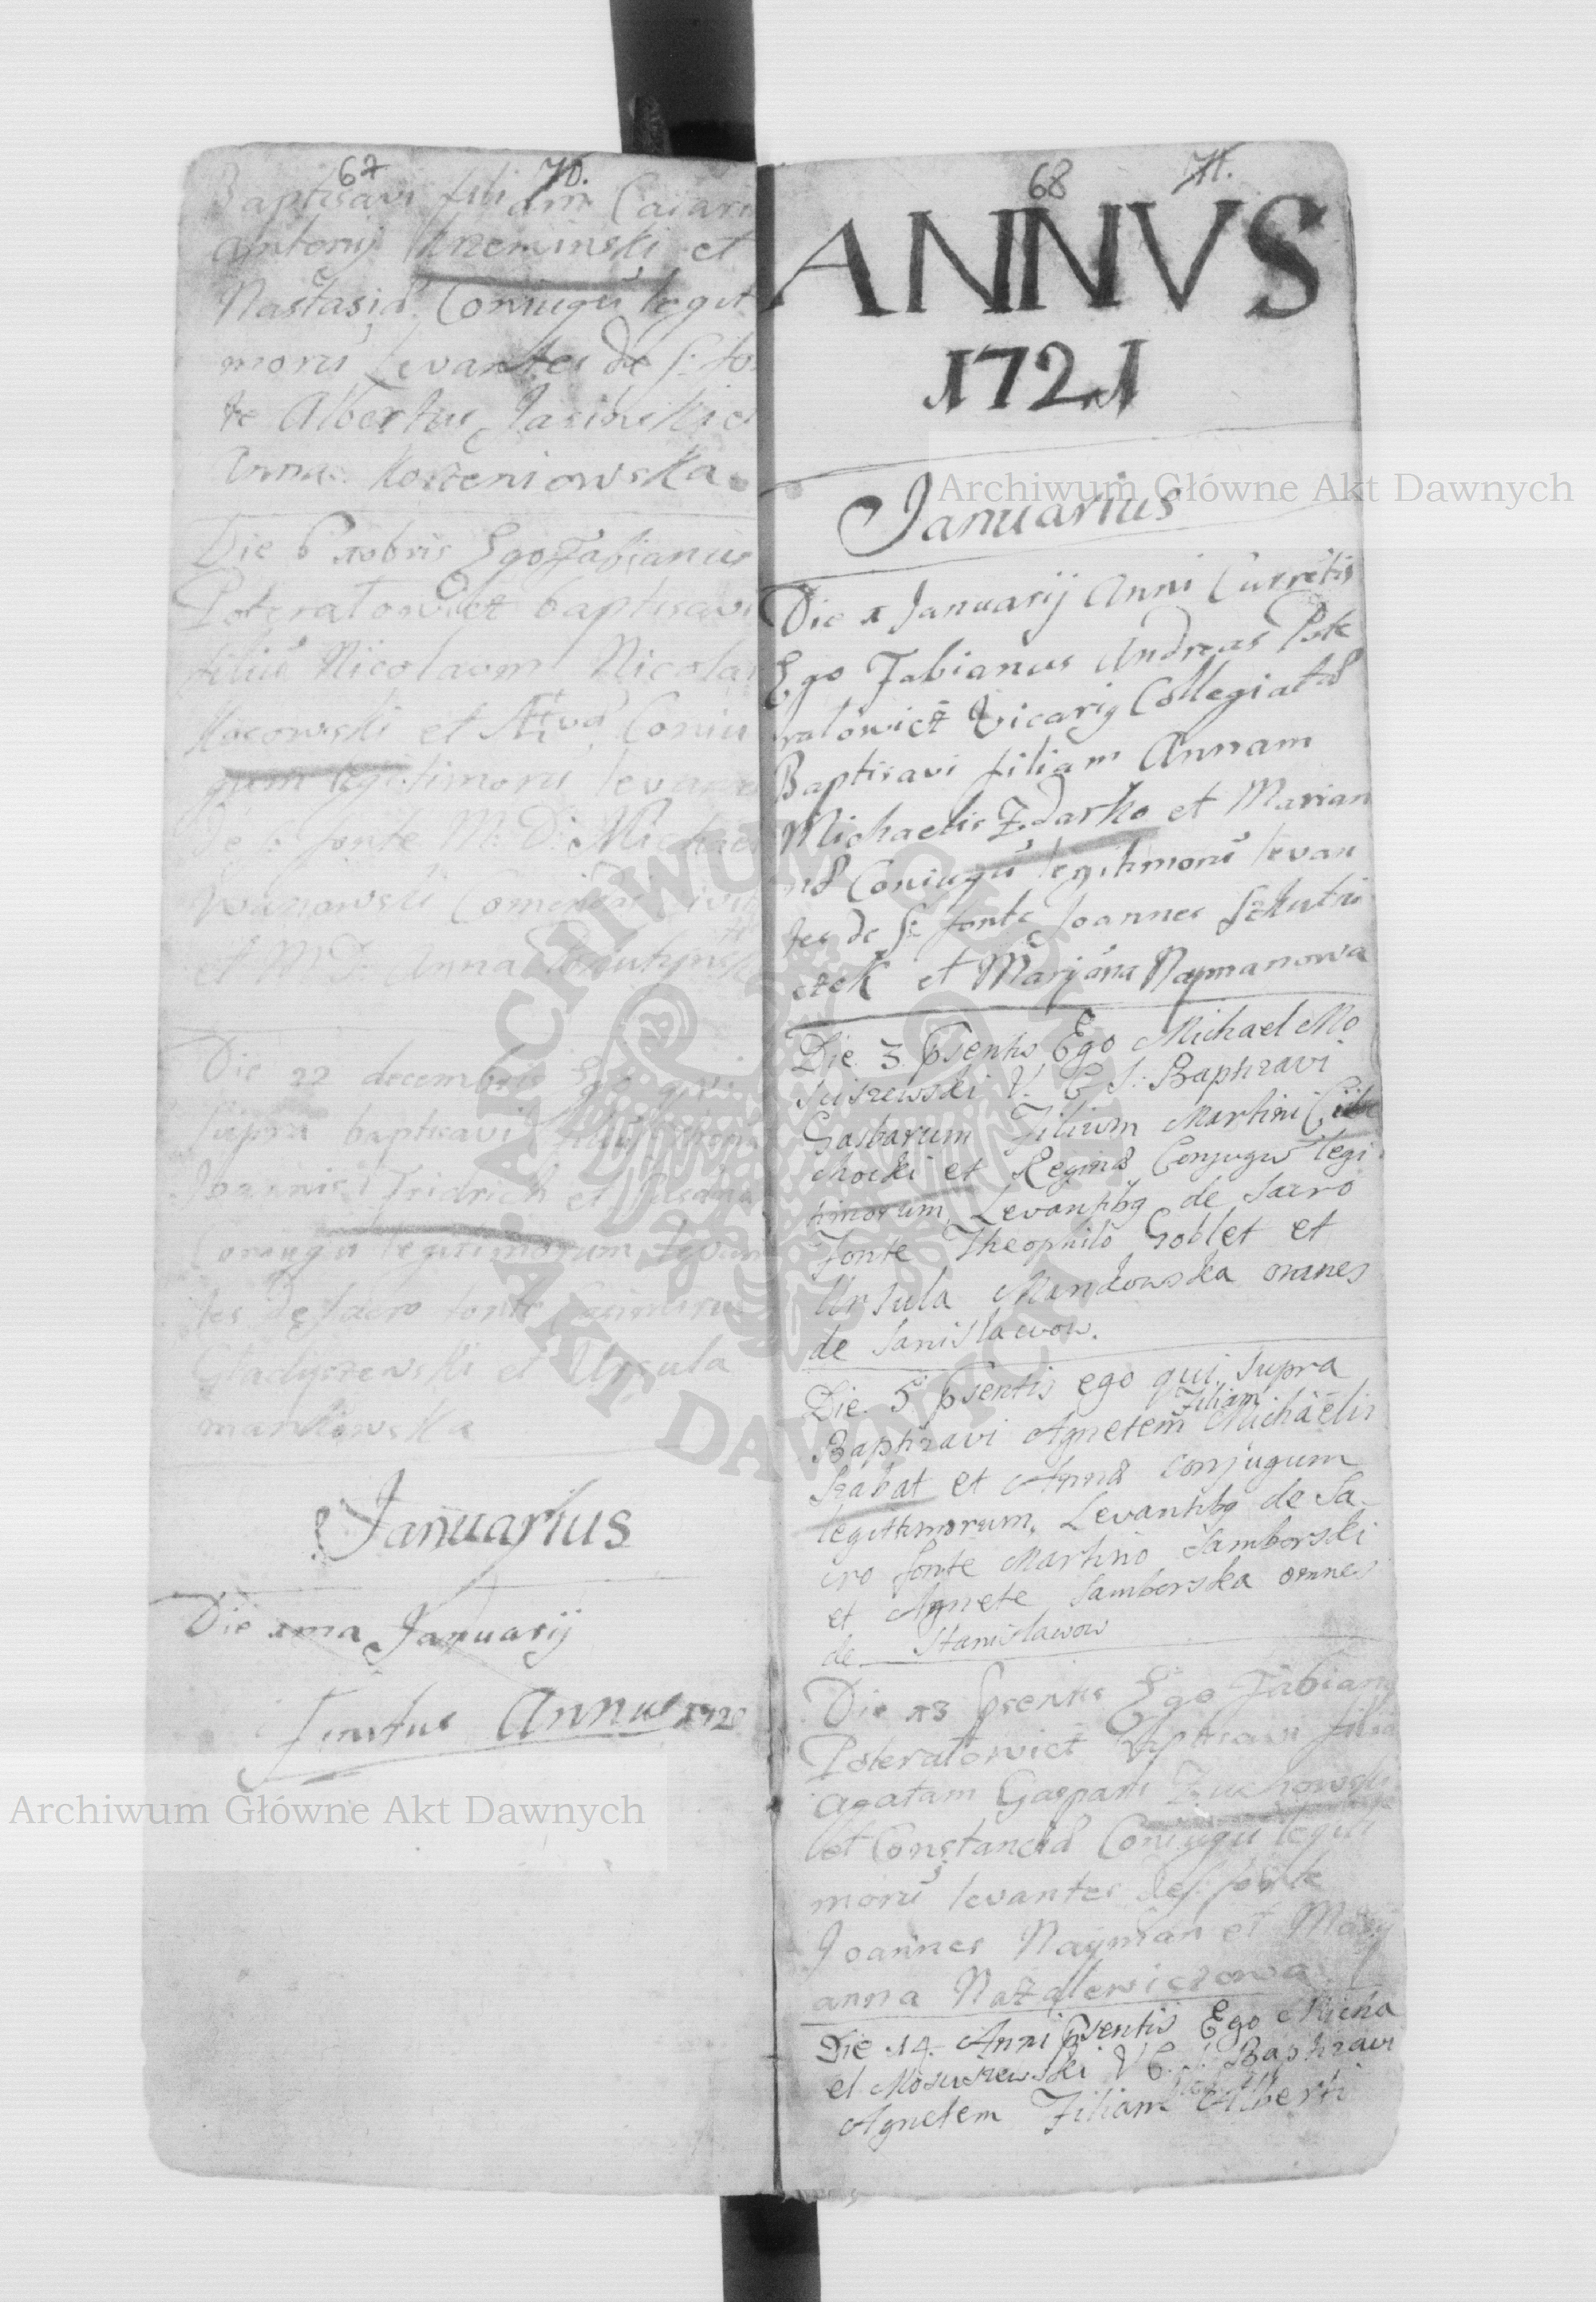 67 70.
Baptisavi filiam
Antonij Krzeminski et
Nastasiæ Coniugũ legit
morũ levantes de S: fon
te Albertus Jasinski et
Anna Korzeniowska
Die 6 Xobris Ego Fabianus
Poteratowicz baptisavi
filiũ Nicolaum Nicolai
et Coniu
gum legitimorũ levan
de S: fonte M: D: Michael
et M: D: Anna
Die 22 decembris Ego qui
supra baptisavi filiũ
Joannis Fridrich et
Coniugũ legitimorum levan
tes de sacro fonte Casimirus
Gladyszewski et Ursula
mankowska
Januarius
Die 1ma Januarij
Finitus Annus 1720
68 71.
ANNVS
1721
Januarius
Die 1 Januarij Anni Currẽtis
Ego Fabianus Andreas Pote
ratowicz Vicarig Collegiatæ
Baptisavi filiam Annam
Michaelis Zdarko et Marian
næ Coniugũ legitimorũ levan
tes de S: fonte Joannes Szkutni
czek et Maryãna Naymanowa
Die 3 Psentis Ego Michael Mo
suszewski V. C S: Baptizavi
Gasbarum Filium Martini
chocki et Reginæ Conjugũ legi
timorum, Levantibg de sacro
Fonte Theophilo Goblet et
Ursula Mankowska omnes
de Sanislawow.
Die 5 Psentis ego qui supra
Baptizavi Agnetem Filiam Michaelis
Szabat et Annæ conjugum
legittimorum, Levantibg de Sa-
cro fonte Martino Samborski
et Agnete Samborska omnes
de Stanislawow
Die 13 Psentis Ego Fabiang
Poteratowicz baptisavi filia
Agatam Gaspari Zuchowski
et Constanciæ Coniugũ legiti
morũ levantes de S: fonte
Joannes Nayman et Mary
anna Nazalewiczowa
Die 14 Anni Psentis Ego Micha
el Mosuszewski V C. S: Baptizavi
Agnetem Filiam Alberti
Archiwum Główne Akt Dawnych
Archiwum Główne Akt Dawnych
ARCHIWUM GŁÓWNE
AKT DAWNYCH